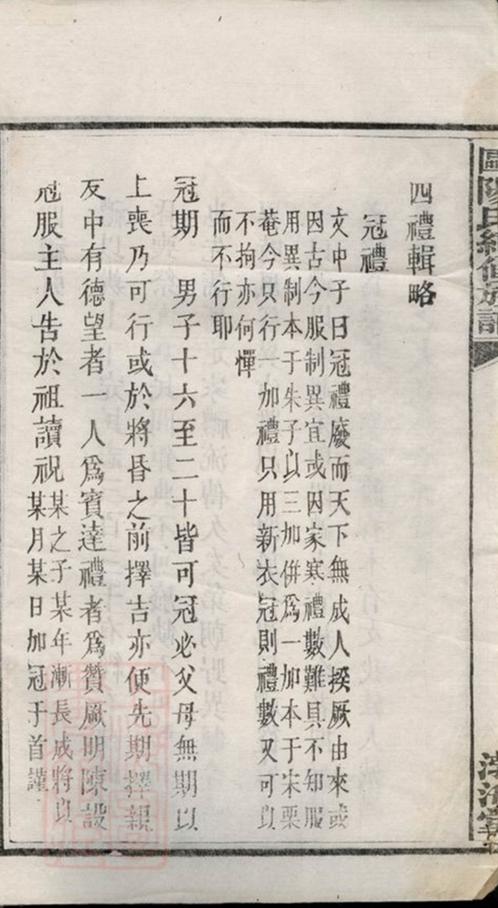 四禮輯略
冠禮
文中子曰冠禮廢而天下無成人揆厥由來或
因古今服制異宜或因家寒禮數難具不知服
用異制本于朱子以三加併爲一加本于宋栗
菴今只行一加禮只用新衣冠則禮數又可以
不拘亦何憚
而不行耶
冠期 男子十六至二十皆可冠必父母無期以
上喪乃可行或於將昏之前擇吉亦便先期擇親
友中有德望者一人爲賓達禮者爲贊厥明陳設
冠服主人告於祖讀祝某之子某年漸長成將以
某月某日加冠于首謹